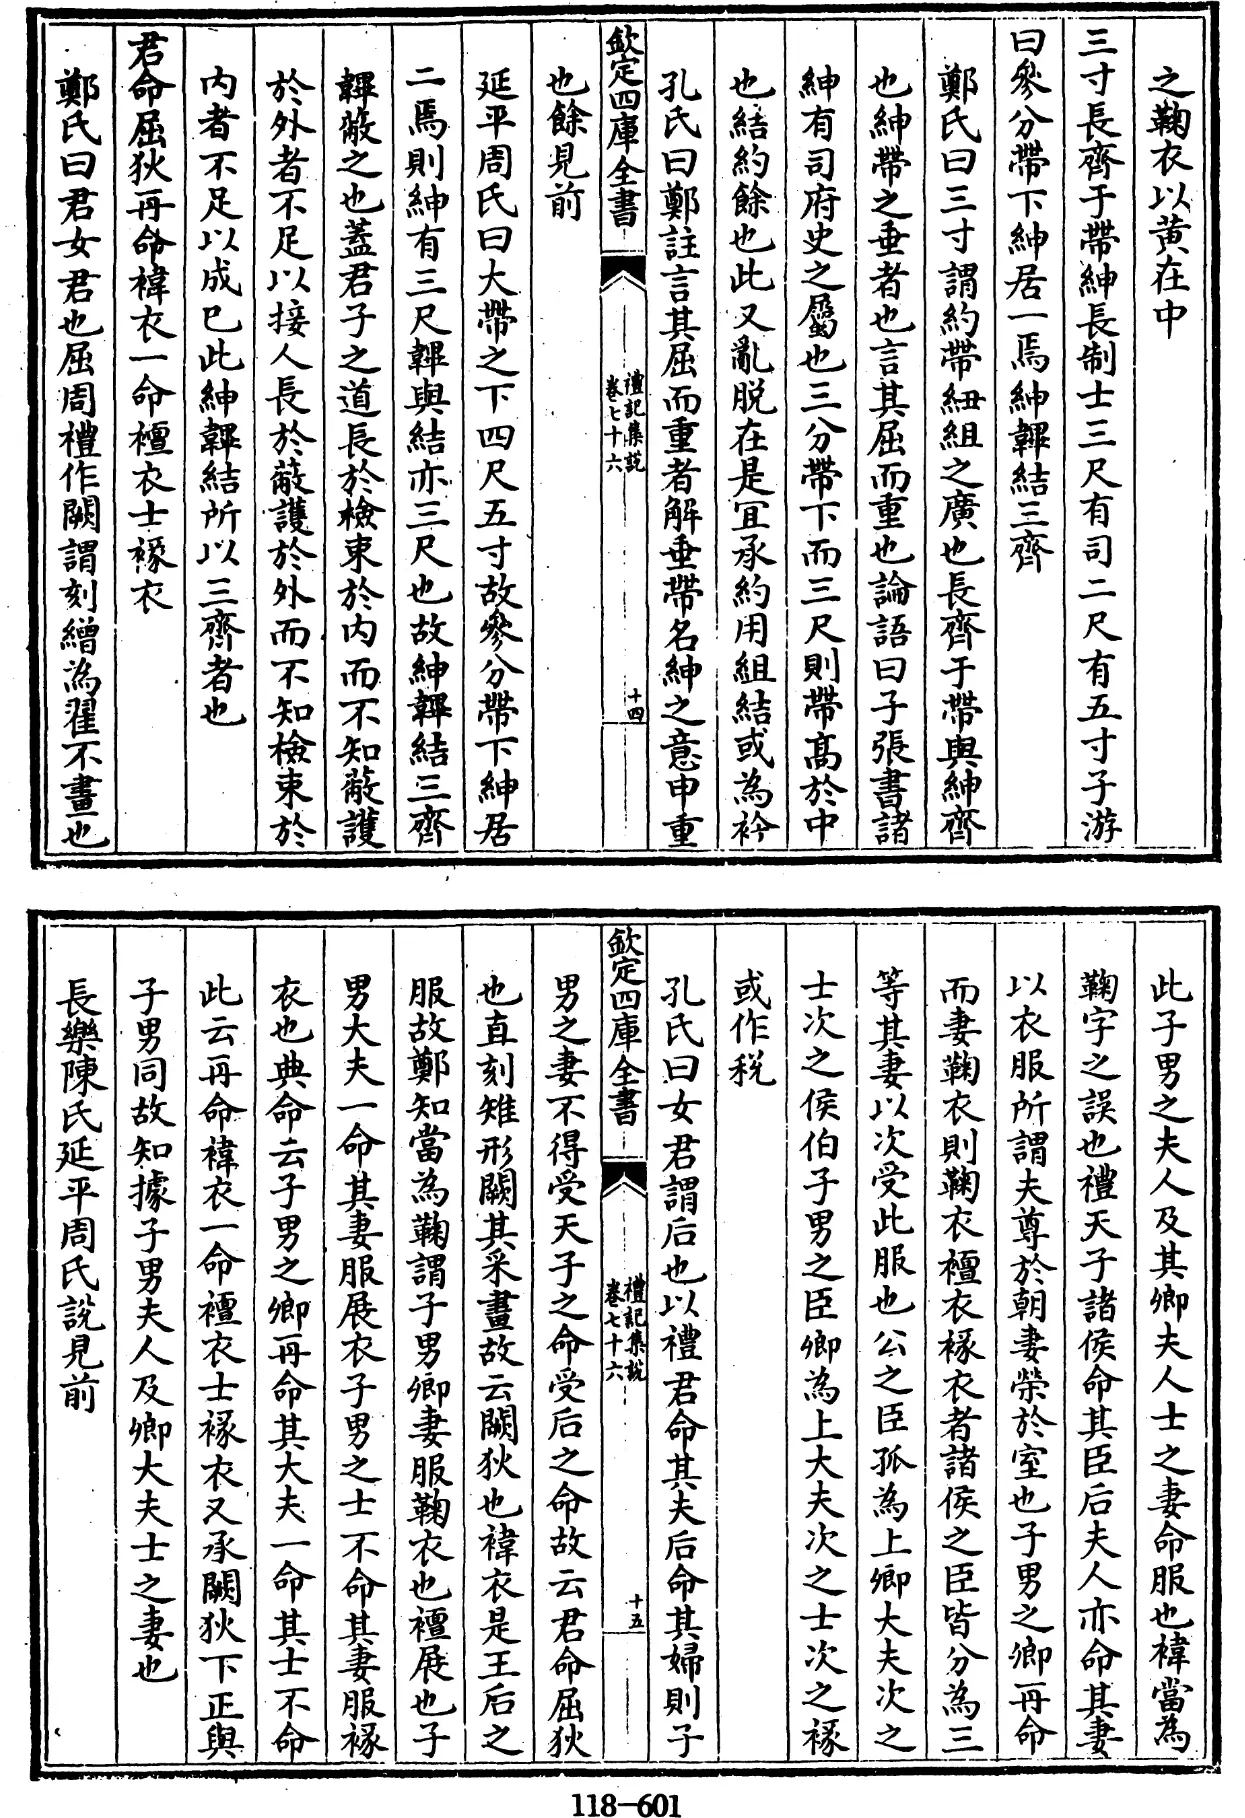 之鞠衣以黄在中
三寸長齊于帶紳長制士三尺有司二尺有五寸子游
曰參分帶下紳居一焉紳韠結三齊
鄭氏曰三寸謂約帶紐組之廣也長齊于帶與紳齊
也紳帶之垂者也言其屈而重也論語曰子張書諸
紳有司府史之屬也三分帶下而三尺則帶髙於中
也結約餘也此又亂脱在是宜承約用組結或為衿
孔氏曰鄭註言其屈而重者解垂帶名紳之意申重
欽定四庫全書
禮記集説
卷七十六
十四
也餘見前
延平周氏曰大帶之下四尺五寸故參分帶下紳居
二焉則紳有三尺韠與結亦三尺也故紳韠結三齊
韠蔽之也蓋君子之道長於檢束於内而不知蔽護
於外者不足以接人長於蔽護於外而不知檢束於
内者不足以成已此紳韠結所以三齊者也
君命屈狄再命褘衣一命襢衣士褖衣
鄭氏曰君女君也屈周禮作闕謂刻繒為翟不畫也
此子男之夫人及其卿夫人士之妻命服也褘當為
鞠字之誤也禮天子諸侯命其臣后夫人亦命其妻
以衣服所謂夫尊於朝妻榮於室也子男之卿再命
而妻鞠衣則鞠衣襢衣褖衣者諸侯之臣皆分為三
等其妻以次受此服也公之臣孤為上卿大夫次之
士次之侯伯子男之臣卿為上大夫次之士次之褖
或作税
孔氏曰女君謂后也以禮君命其夫后命其婦則子
欽定四庫全書
禮記集説
卷七十六
十五
男之妻不得受天子之命受后之命故云君命屈狄
也直刻雉形闕其采畫故云闕狄也褘衣是王后之
服故鄭知當為鞠謂子男卿妻服鞠衣也襢展也子
男大夫一命其妻服展衣子男之士不命其妻服褖
衣也典命云子男之卿再命其大夫一命其士不命
此云再命褘衣一命襢衣士褖衣又承闕狄下正與
子男同故知據子男夫人及卿大夫士之妻也
長樂陳氏延平周氏説見前
118-601